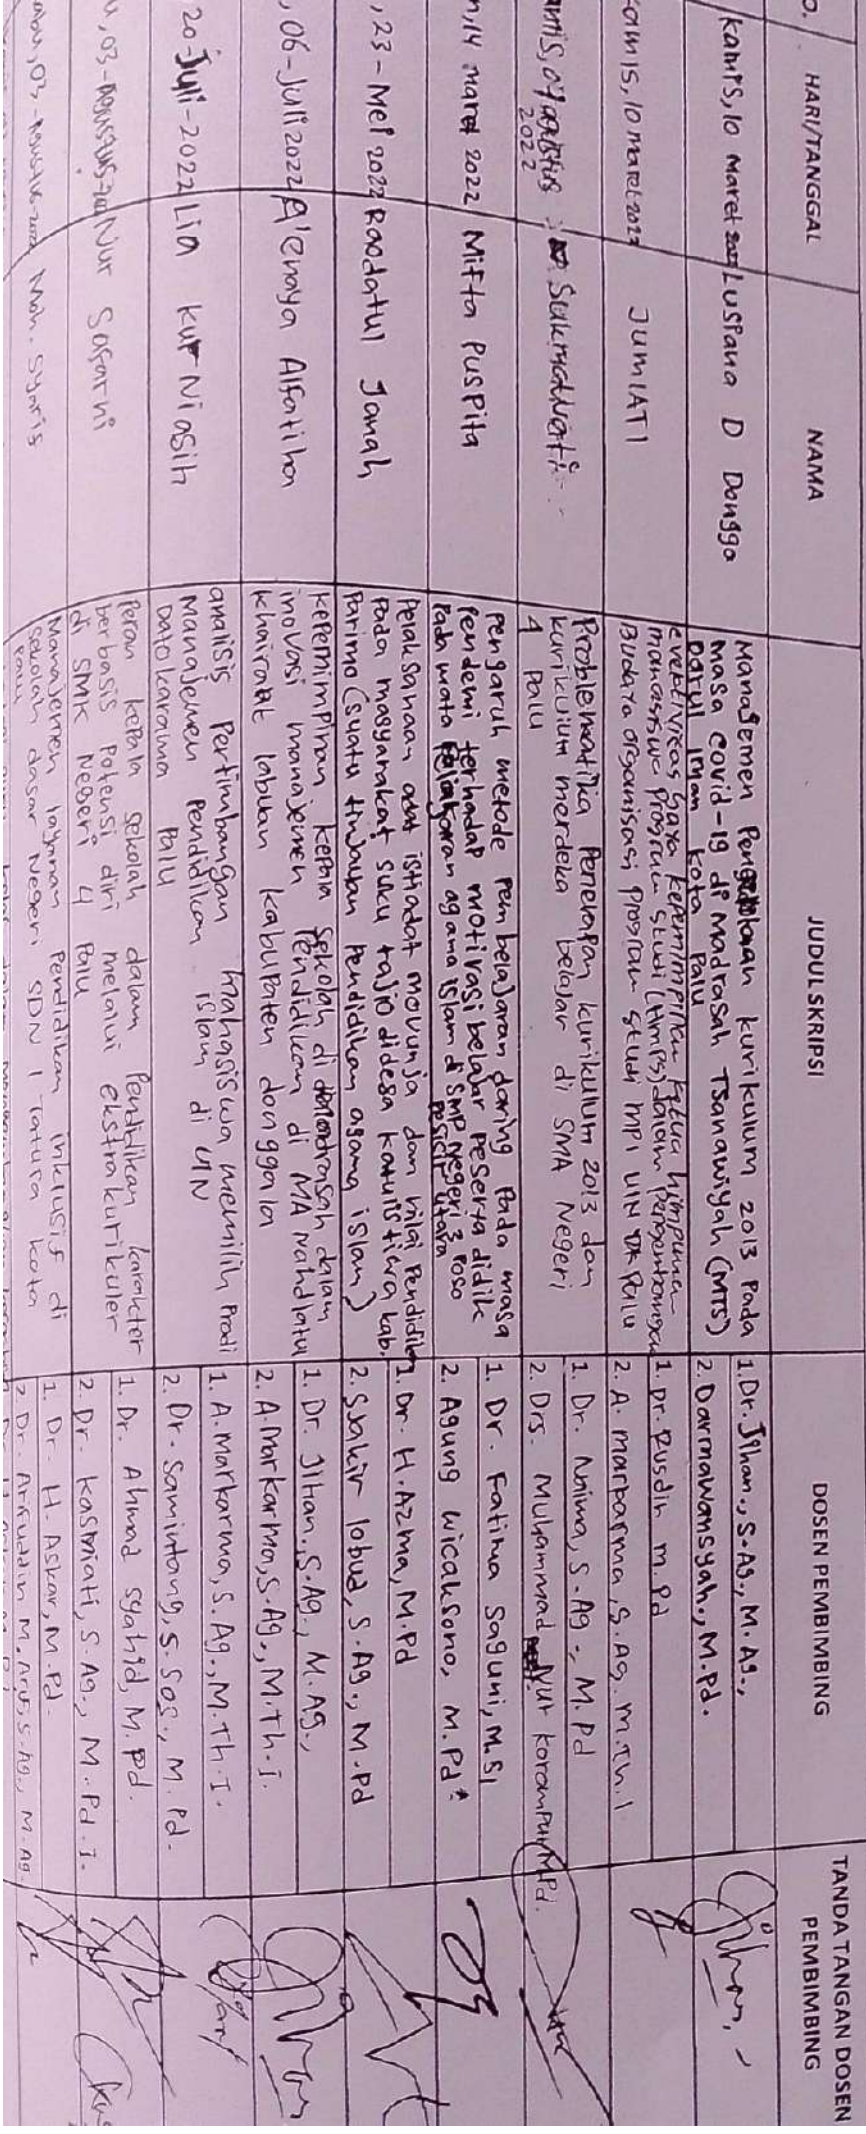 O. HARI/TANGGAL NAMA JUDUL SKRIPSI DOSEN PEMBIMBING TANDA TANGAN DOSEN PEMBIMBING
Kamis, 10 Maret Lusiana D Dongga
Manajemen Pengelolaan kurikulum 2013 Pada
masa covid-19 di Madrasah Tsanawiyah (MTS)
Darul Iman kota Palu
1. Dr. Jihan., S.Ag., M.Ag.,
2. Darmawansyah., M.Pd.
amis, 10 maret 2022 JUMIATI
evektivitas Gaya kepemimpinan ketua himpunan
mahasiswa program studi (HMPS) dalam
Budaya organisasi program studi MPI UIN DK Palu
1. Dr. Rusdin M.Pd
2. A. Markarma, S.Ag. M.Th.I
amis, 04 agustus 2022 Sukmawati
Problematika Penerapan kurikulum 2013 dan
kurikulum merdeka belajar di SMA Negeri
4 Palu
1. Dr. Naima, S.Ag., M.Pd
2. Drs. Muhammad Nur Korompot M.Pd.
n, 14 maret 2022 Mifta Puspita
Pengaruh metode pembelajaran daring Pada masa
Pendemi terhadap motivasi belajar Peserta didik
Pada mata Pelajaran agama islam di SMP Negeri 3 Poso
Pesisir utara
1. Dr. Fatima Saguni, M.Si
2. Agung Wicaksono, M.Pd
, 23-Mei 2022 Raodatul Janah
Pelaksanaan adat istiadat movunja dan nilai Pendidikan
Pada masyarakat suku tajio didesa katulistiwa kab.
Parimo (suatu tinjauan Pendidikan agama islam)
1. Dr. H. Azma, M.Pd
2. Sjakir lobud, S.Ag., M.Pd
, 06-Juli 2022 A'enaya Alfatiha
Kepemimpinan kepala sekolah di madrasah dalam
inovasi manajemen Pendidikan di MA Nahdlatul
khairaat labuan kabupaten donggala
1. Dr. Jihan, S.Ag., M.Ag.,
2. A. Markarma, S.Ag., M.Th.I.
20-Juli-2022 Lia Kurniasih
analisis Pertimbangan mahasiswa memilih Prodi
Manajemen Pendidikan islam di UIN
Datokarama Palu
1. A. Markarma, S.Ag., M.Th.I.
2. Dr. Samintang, S.Sos., M.Pd.
u, 03-Agustus Nur Safarni
Peran kepala sekolah dalam Pendidikan karakter
berbasis Potensi diri melalui ekstrakurikuler
di SMK Negeri 4 Palu
1. Dr. Ahmad Syahid, M.Pd.
2. Dr. Kasmiati, S.Ag., M.Pd.I.
abu, 03-Agustus-2022 Moh. Syaris
Manajemen layanan Pendidikan inklusif di
sekolah dasar Negeri SDN 1 Tatura kota
Palu
1. Dr. H. Askar, M.Pd.
2. Dr. Arifuddin M. Arif, S.Ag., M.Ag.